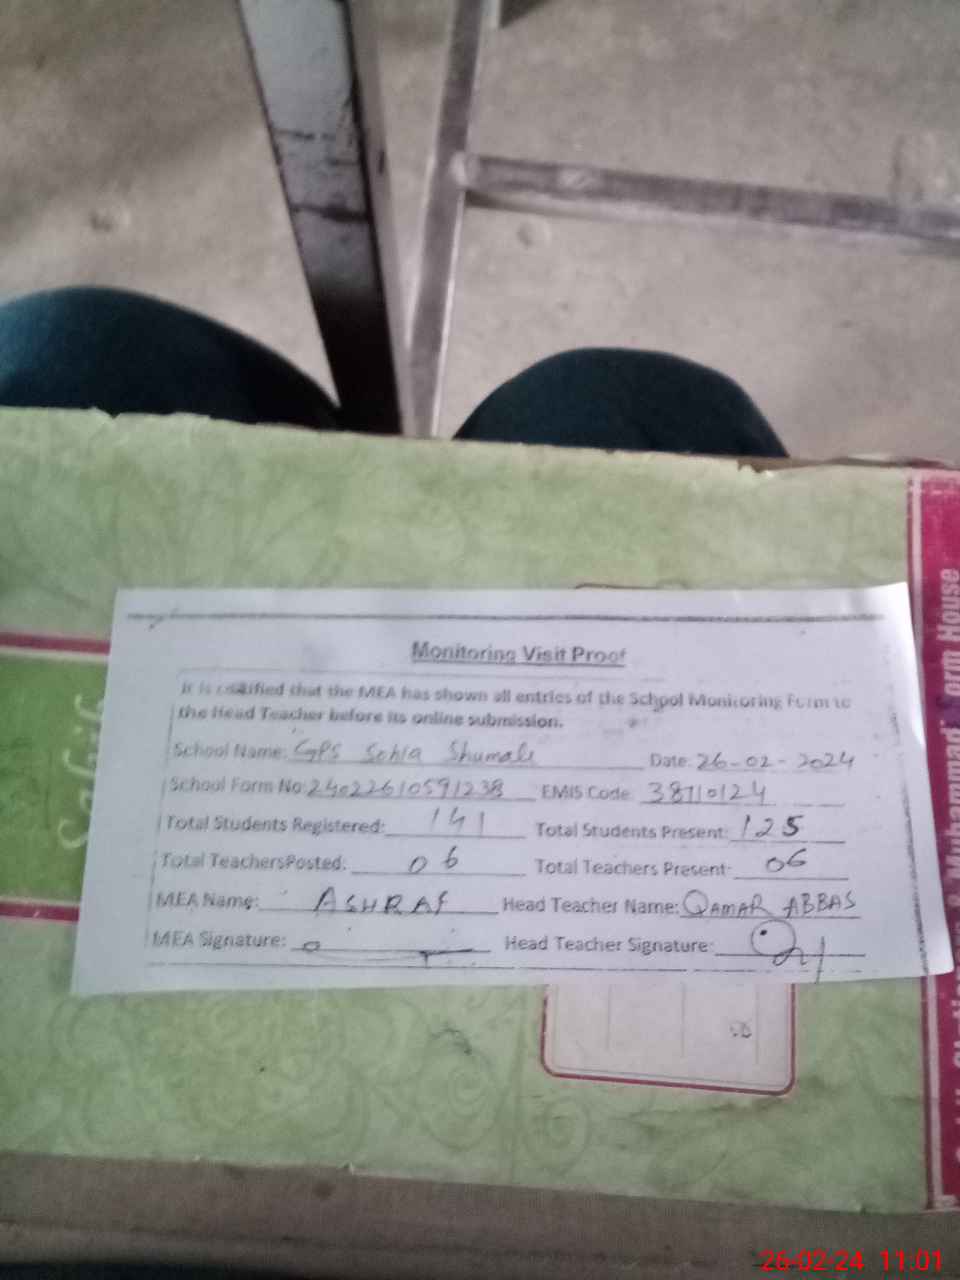 Monitoring Visit Proof
It is certified that the MEA has shown all entries of the School Monitoring Form to
the Head Teacher before its online submission.
School Name: GPS Sohla Shumali Date: 26-02-2024
School Form No: 24022610591238 EMIS Code: 38710124
Total Students Registered: 141 Total Students Present: 125
Total TeachersPosted: 06 Total Teachers Present: 06
MEA Name: ASHRAF Head Teacher Name: QAMAR ABBAS
MEA Signature: Head Teacher Signature:
Muhammad Form House
26-02-24 11:01